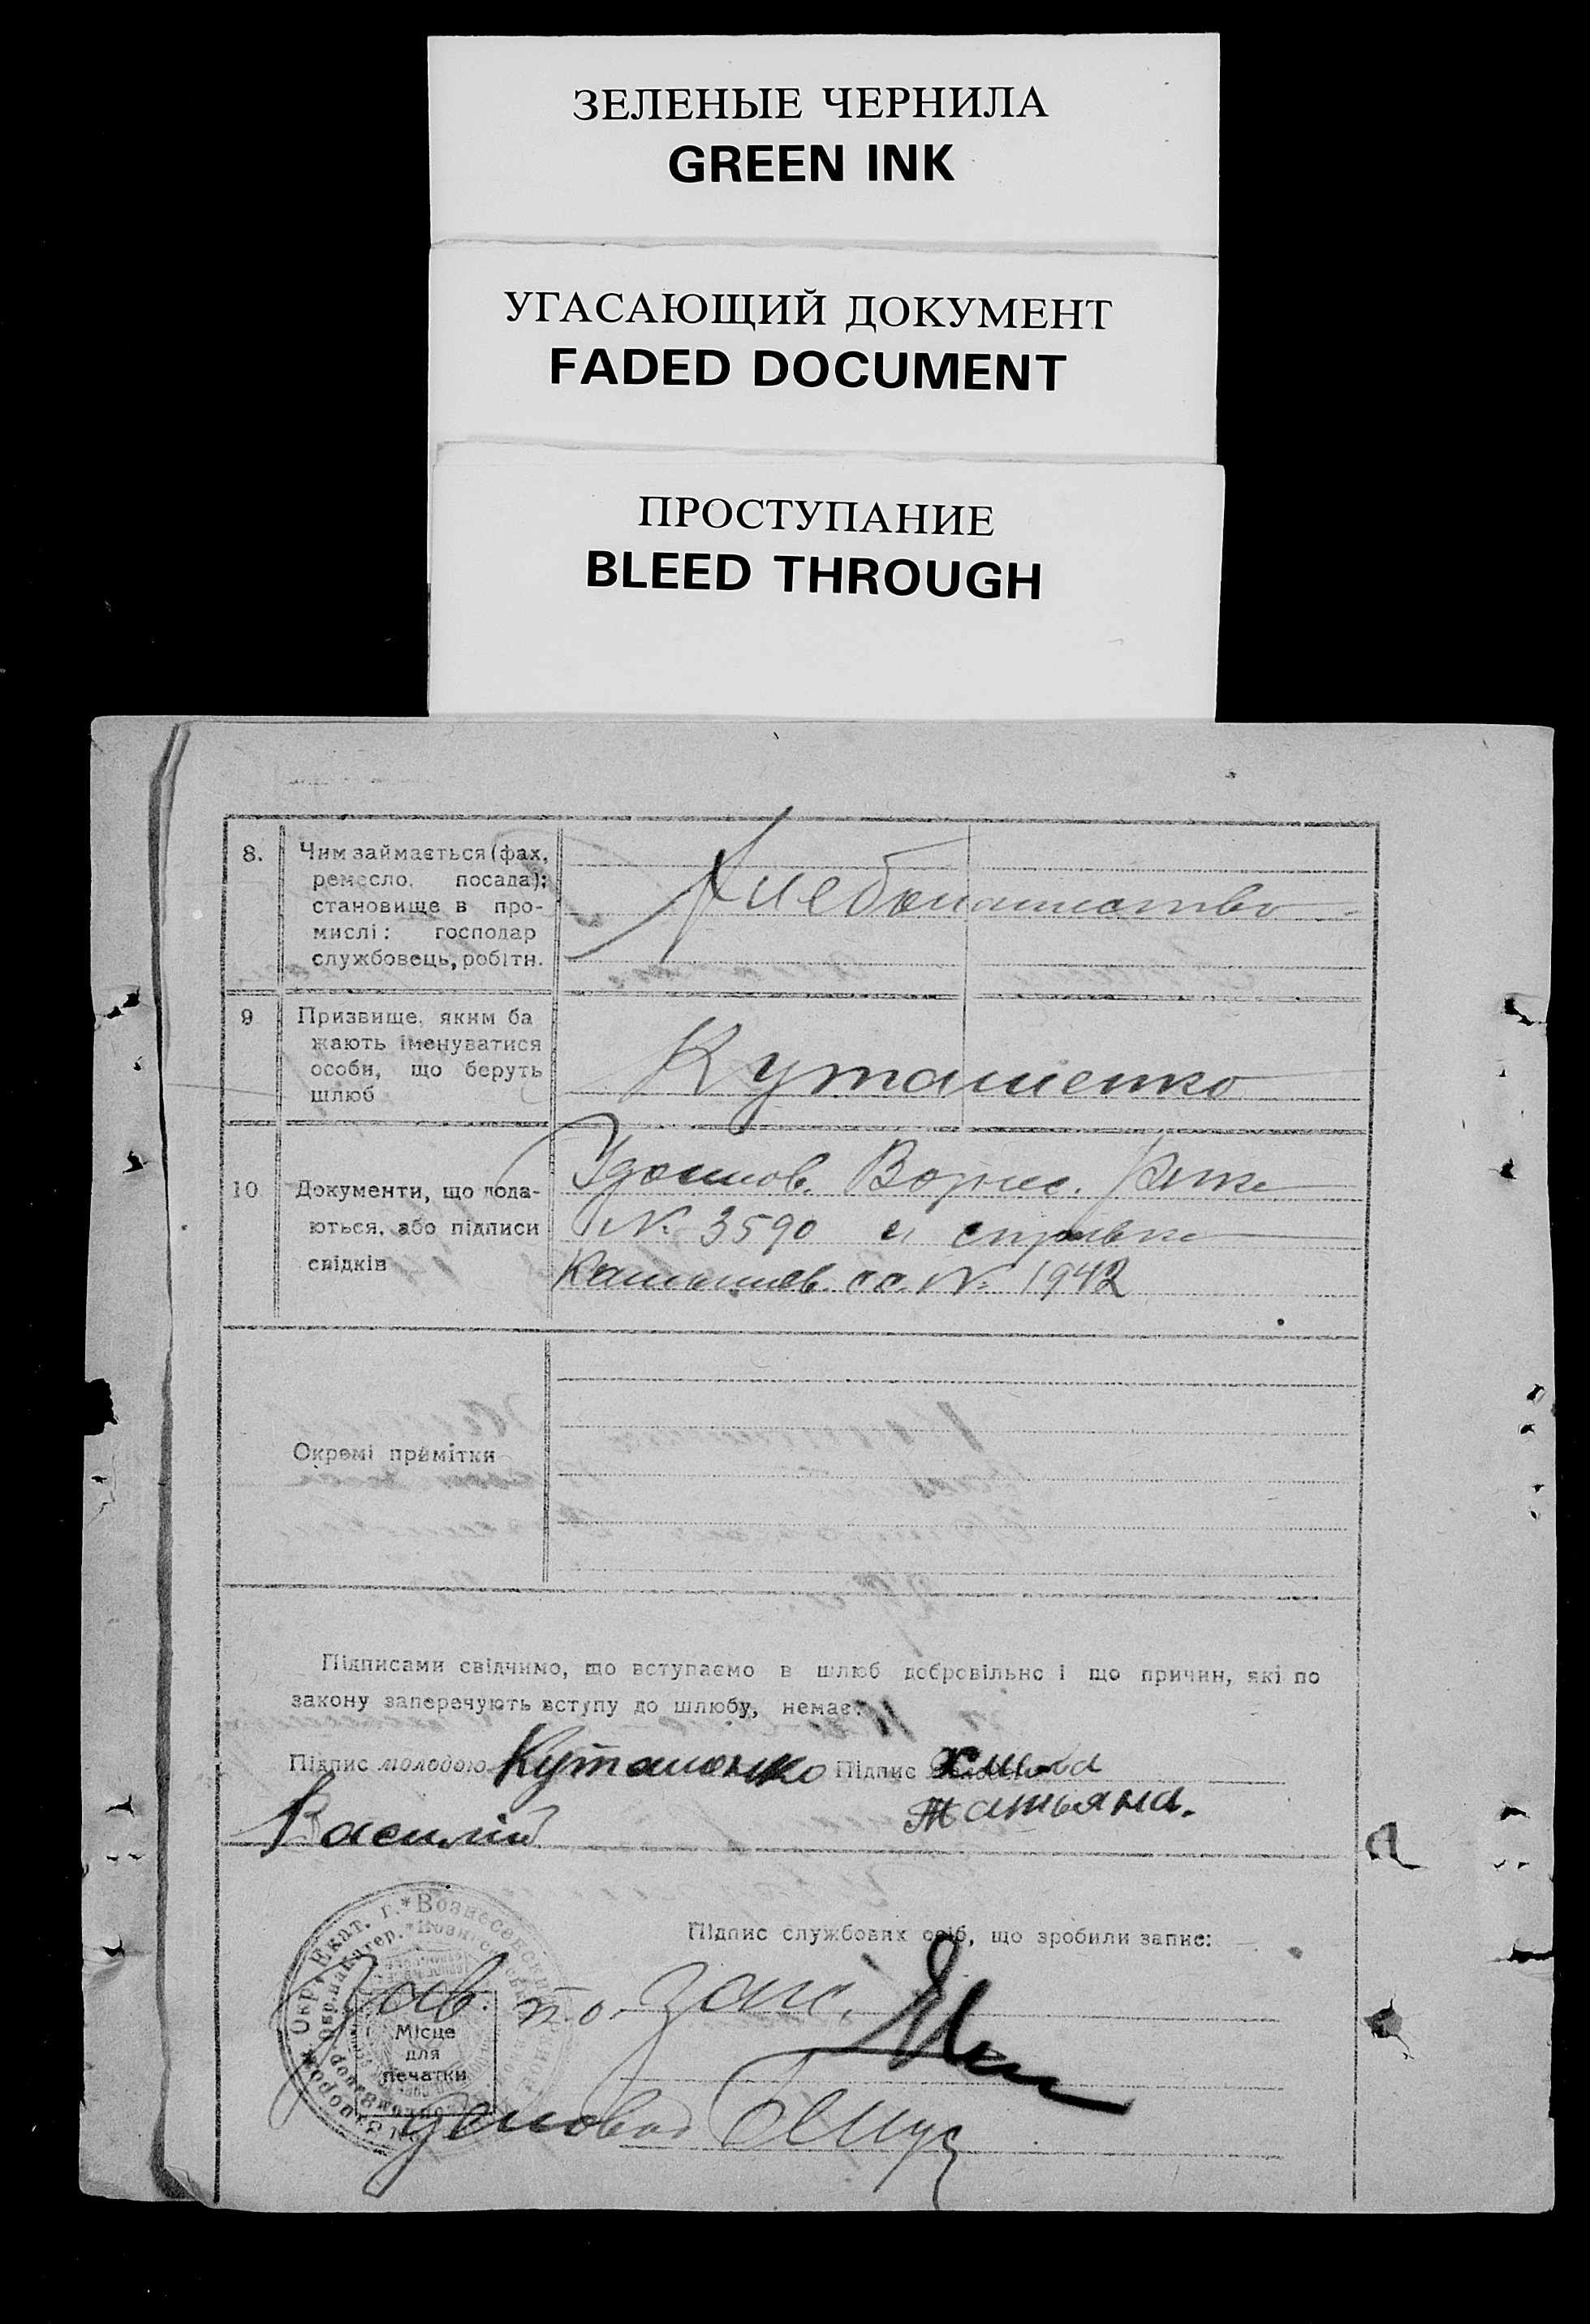 ЗЕЛЕНЫЕ ЧЕРНИЛА
GREEN INK
УГАСАЮЩИЙ ДОКУМЕНТ
FADED DOCUMENT
ПРОСТУПАНИЕ
BLEED THROUGH
8.
Чим займається (фах,
ремесло, посада);
становище в про-
мислі: господар
службовець, робітн.
Хлебопашество
9
Призвище, яким ба
жають іменуватися
особи, що беруть
шлюб
Куташенко
10
Документи, що пода-
ються, або підписи
свідків
Удостов.
№ 3590 и справка
сс. № 1942
Окремі примітки
Підписами свідчимо, що вступаємо в шлюб добровільно і що причин, які по
закону заперечують вступу до шлюбу, немає:
Підпис молодою Куташенко Підпис
Василий
Татьяна.
Підпис службових осіб, що зробили запис:
Зав. п.о. запис.
Місце
для
печатки